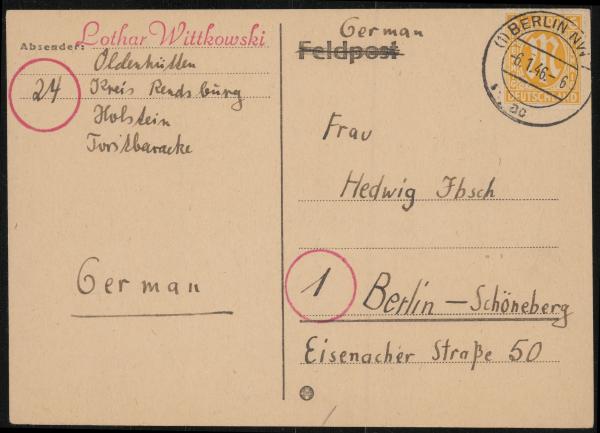 Absender: Lothar Wittkowski
Oldenhütten
24 Kreis Rendsburg
Holstein
Forstbaracke
German
German
Feldpost
(1) BERLIN NW 7
-6.1.46.- 6
DEUTSCHLAND
Frau
Hedwig Ibsch
1 Berlin – Schöneberg
Eisenacher Straße 50